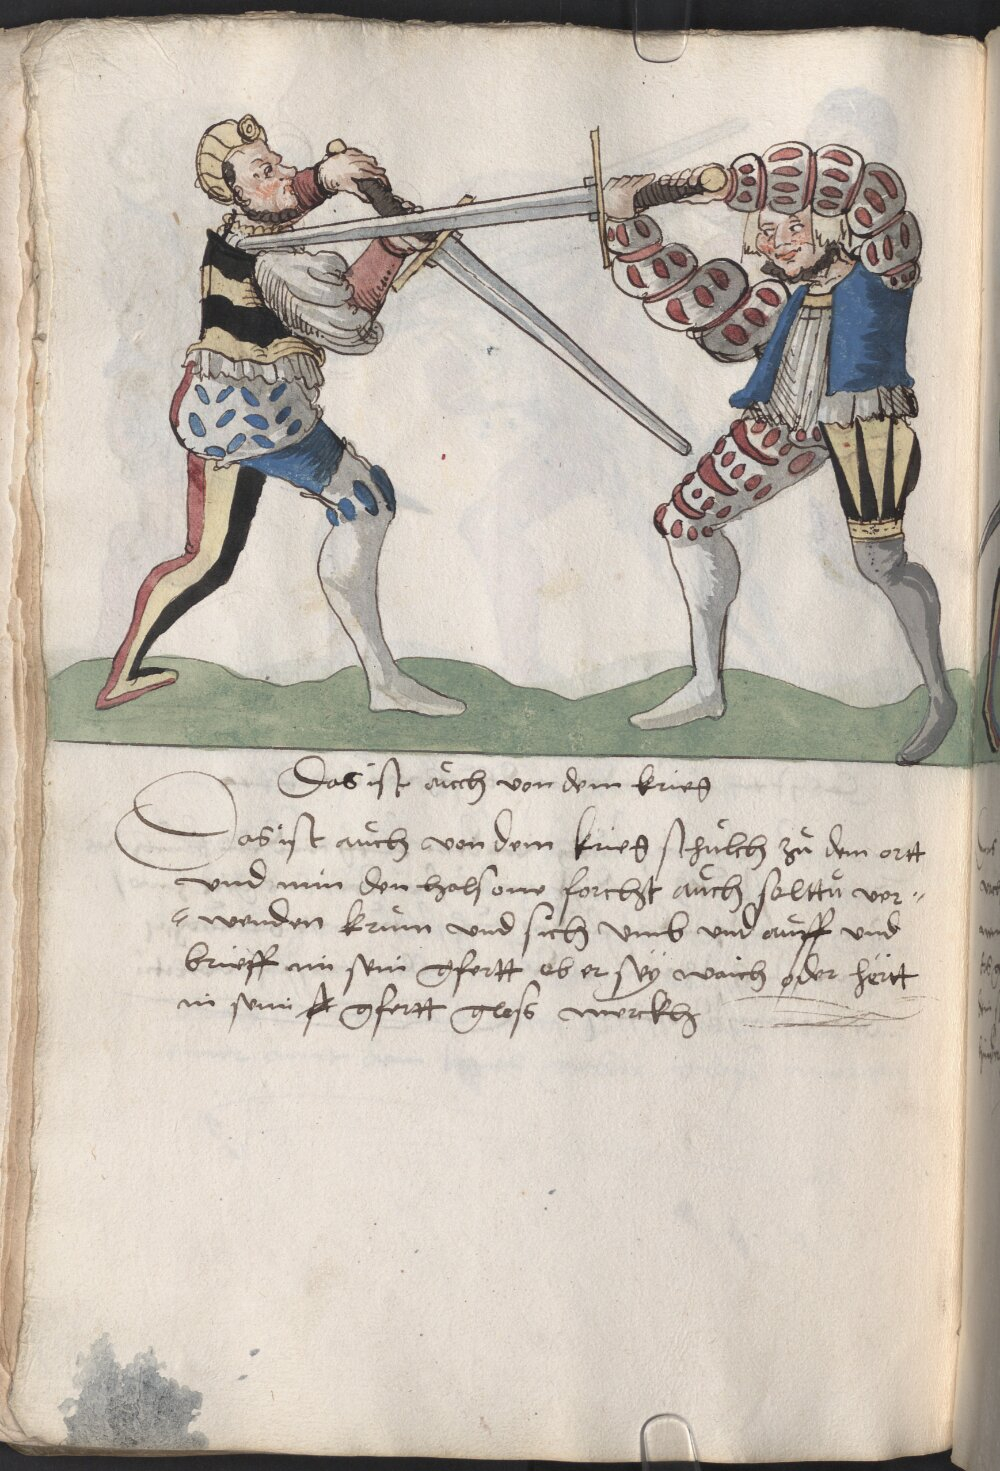 Das ist aǔch von dem krieg
Das ist aǔch von dem krieg schilch zǔ dem ortt
vnd nim den hals one forcht aǔch soltǔ ver-
wenden krǔm vnd sich vmb vnd aǔff vnd
brieff im sein gfertt ob er sey waich oder hertt
in seim gfertt gloss merckh